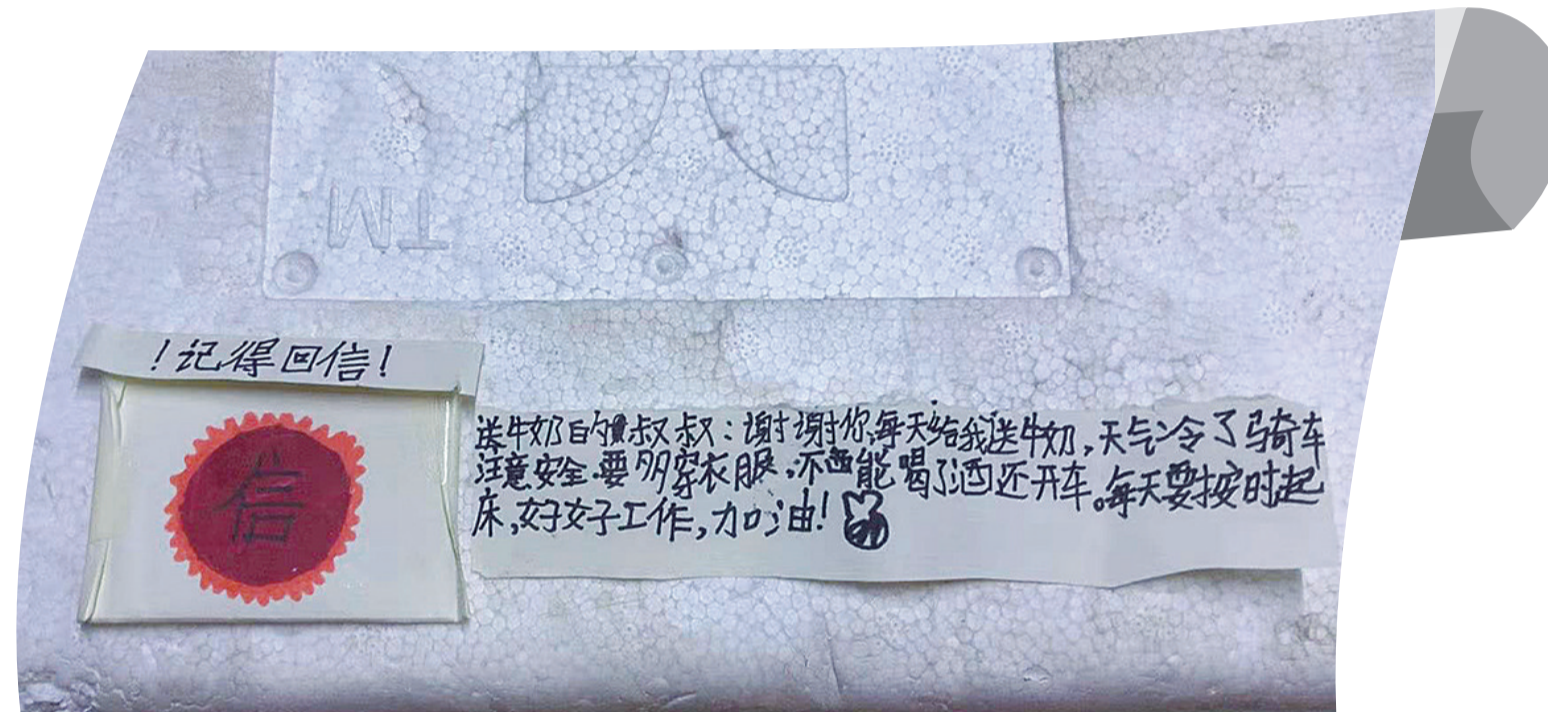 TM
！记得回信！
信
送牛奶的叔叔：谢谢你每天给我送牛奶，天气冷了骑车
注意安全.要多穿衣服.不能喝了酒还开车。每天要按时起
床,好好工作,加油!